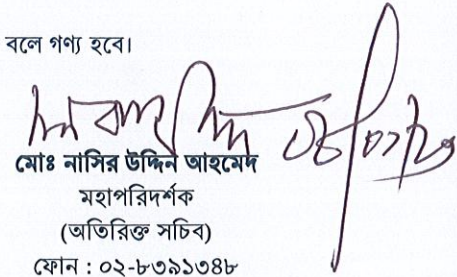 বলে গণ্য হবে।
মোঃ নাসির উদ্দিন আহমেদ
মহাপরিদর্শক
(অতিরিক্ত সচিব)
ফোন : ০২-৮৩৯১৩৪৮